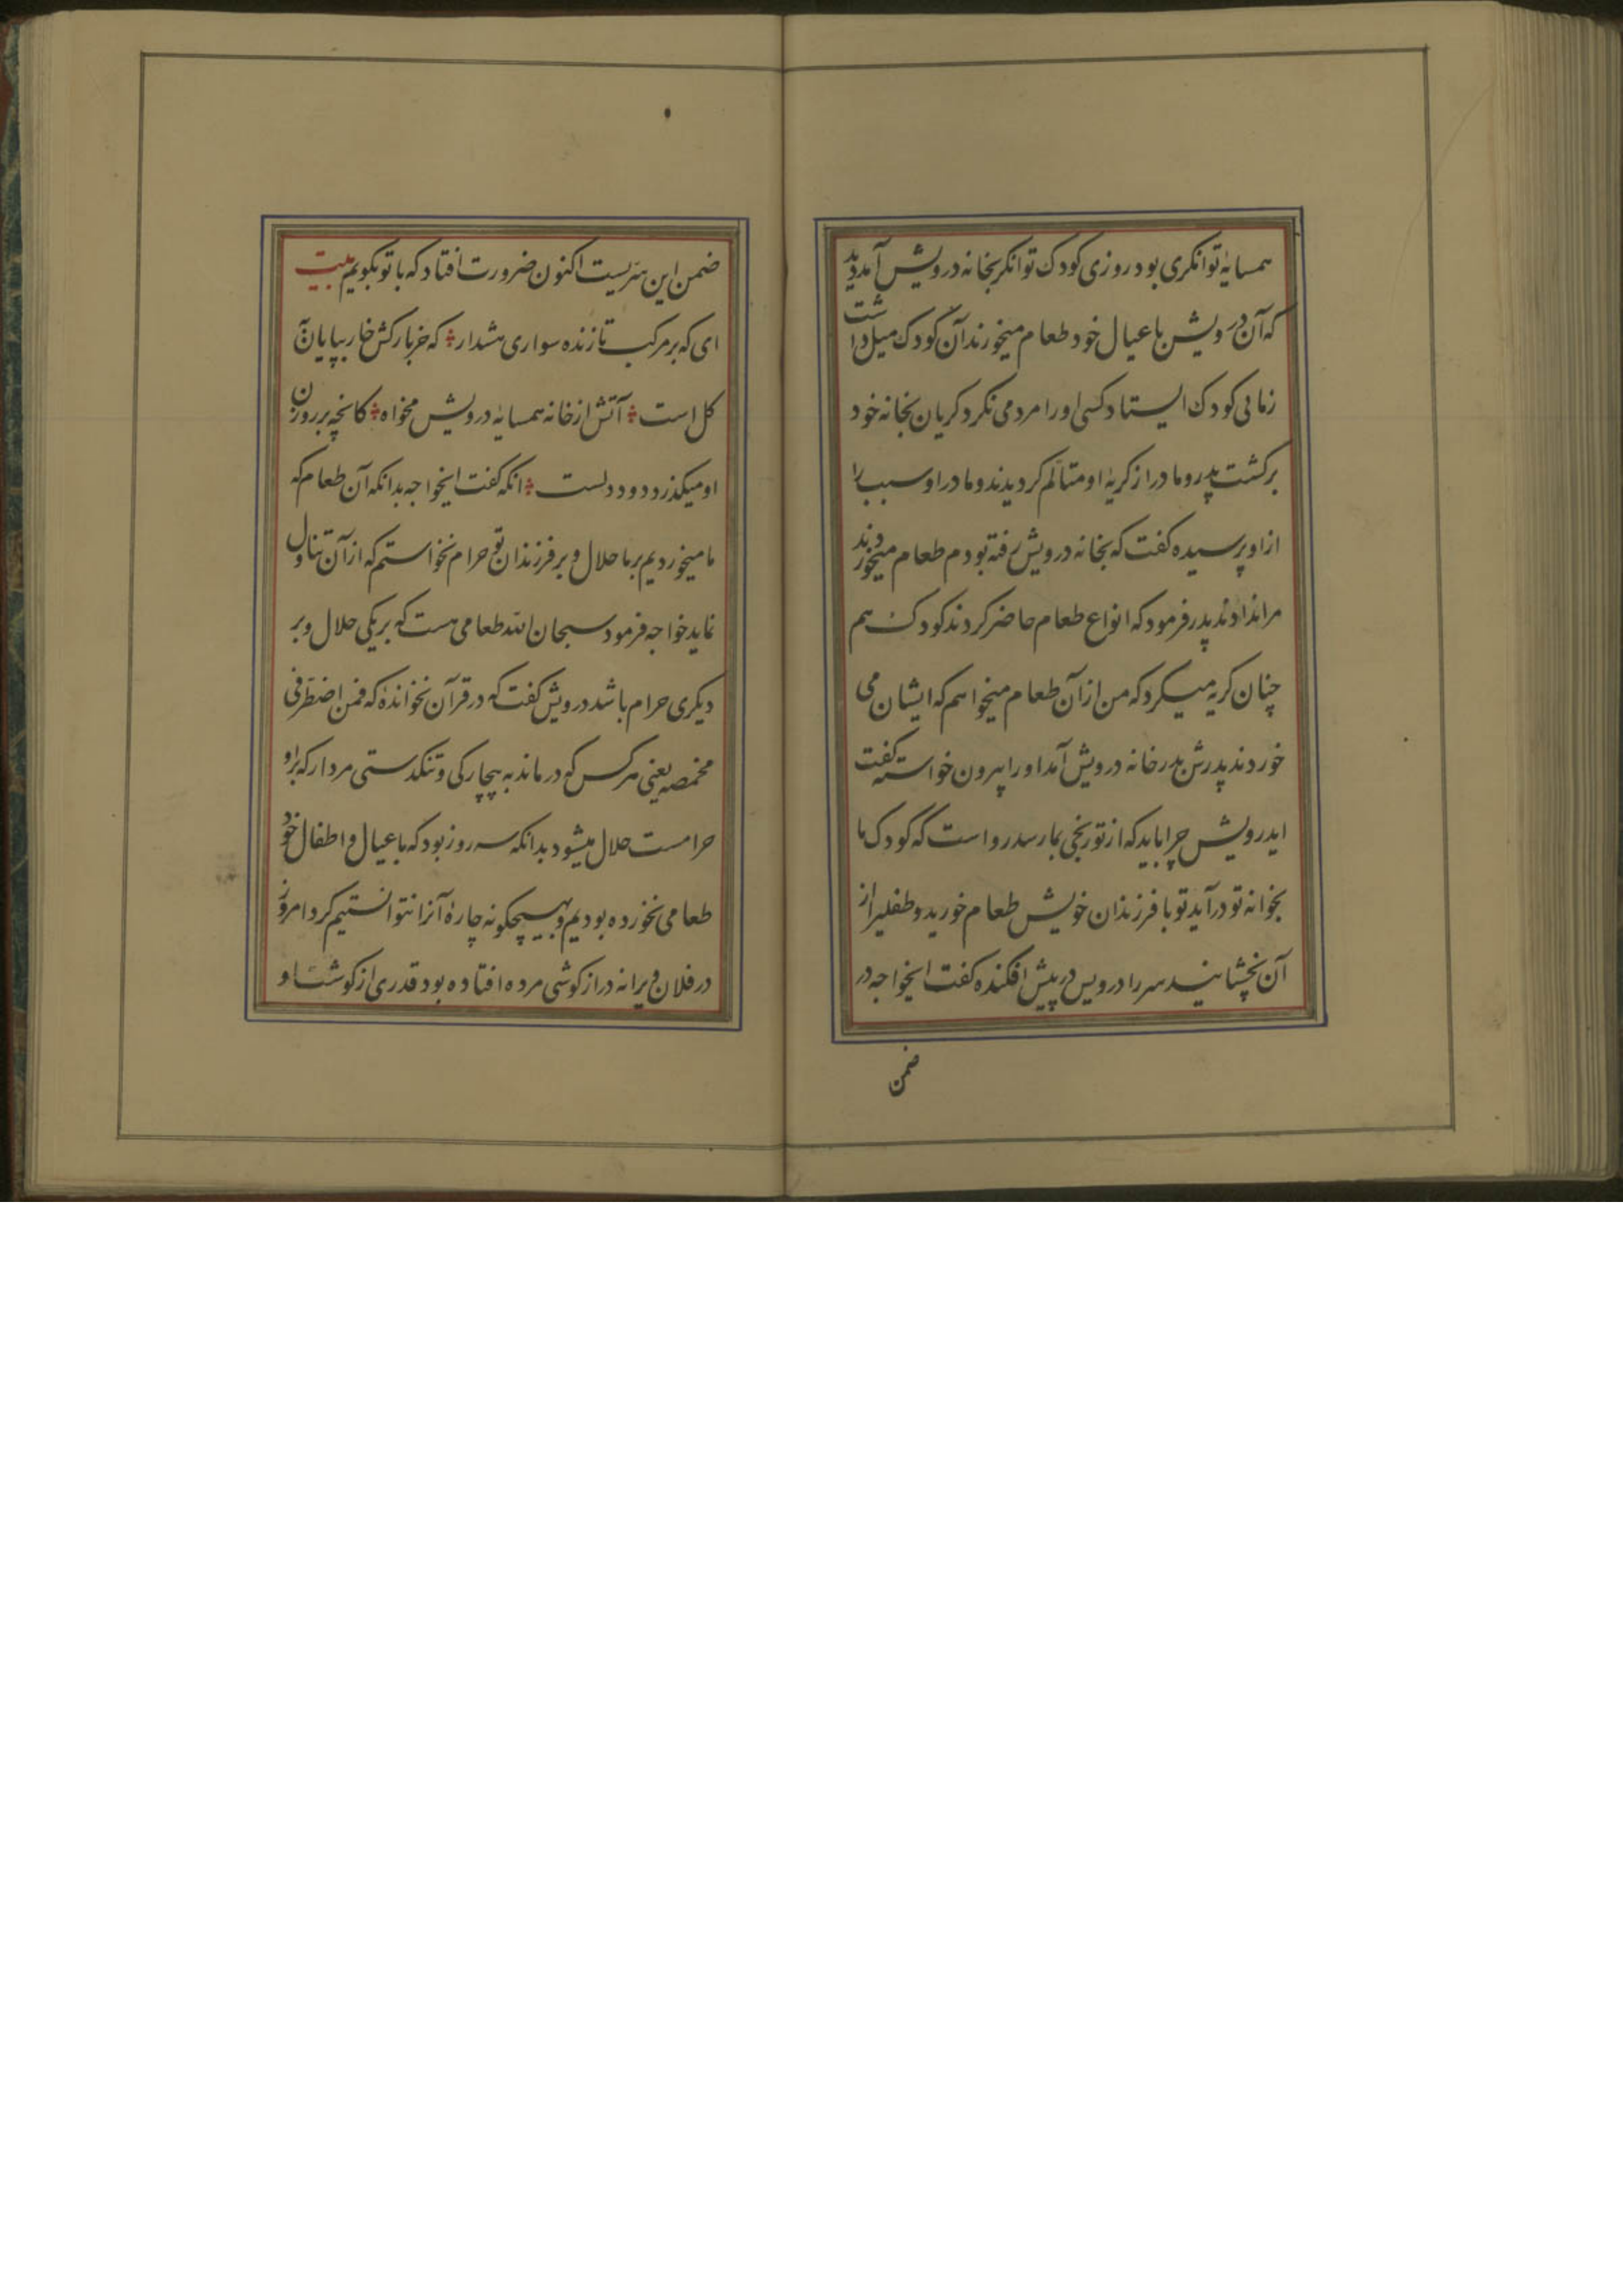 همسایهٔ توانکری بود روزی کودک توانکر بخانه درویش آمد دید
که آن درویش با عیال خود طعام میخورند آن کودک میل داشت
زمانی کودک ایستاد کسی او را مردمی نکرد کریان بخانه خود
برکشت پدر و مادر از کریهٔ او متألم کردیدند و مادر او سبب را
از او پرسیده کفت که بخانه درویش رفته بودم طعام میخوردند
مرا ندادند پدر فرمود که انواع طعام حاضر کردند کودک هم
چنان کریه میکرد که من از آن طعام میخواهم که ایشان می
خوردند پدرش بدر خانه درویش آمد او را بیرون خواسته کفت
ایدرویش چرا باید که از تو رنجی بما رسد روا است که کودک ما
بخوانه تو درآید تو با فرزندان خویش طعام خورید و طفلیرا از
آن نچشانید سر را درویس در پیش افکنده کفت ایخواجه در
ضمن
ضمن این سریست اکنون ضرورت افتاد که با تو بکویم بیت
ای که بر مرکب تازنده سواری هشدار که خر بارکش خار بپایان
کل است آتش از خانه همسایهٔ درویش مخواه کانچه بر روزن
او میکذرد دود دلست انکه کفت ایخواجه بدانکه آن طعام که
ما میخوردیم بر ما حلال و بر فرزندان تو حرام نخواستم که از آن تناول
نماید خواجه فرمود سبحان الله طعامی هست که بر یکی حلال و بر
دیکری حرام باشد درویش کفت که در قرآن نخواندهٔ که فمن اضطر فی
مخمصه یعنی هر کس که درماند به بیچارکی و تنکدستی مردار که بر او
حرامست حلال میشود بدانکه سه روز بود که با عیال و اطفال خود
طعامی نخورده بودیم و بهیچکونه چارهٔ آنرا نتوانستیم کرد امروز
در فلان ویرانه درازکوشی مرده افتاده بود قدری از کوشت او